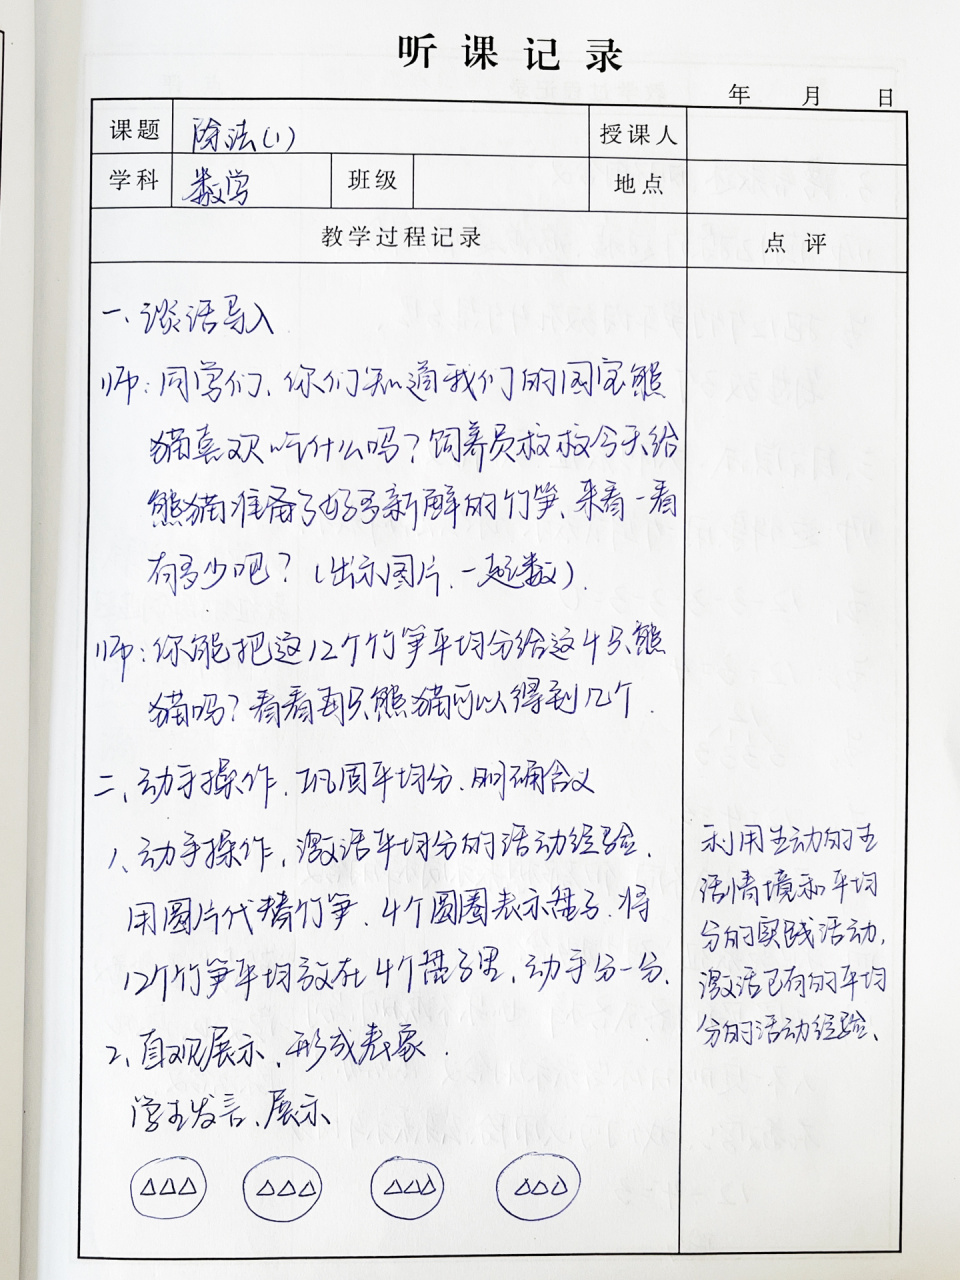 听课记录
年 月 日
课题 除法(1) 授课人
学科 数学 班级 地点
教学过程记录 点评
一、谈话导入
师:同学们,你们知道我们的国宝熊
猫喜欢吃什么吗?饲养员叔叔今天给
熊猫准备了好多新鲜的竹笋,来看一看
有多少吧?(出示图片,一起数)
师:你能把这12个竹笋平均分给这4只熊
猫吗?看看每只熊猫可以得到几个.
二、动手操作,巩固平均分,明确含义
1、动手操作,激活平均分的活动经验.
用圆片代替竹笋,4个圆圈表示盘子,将
12个竹笋平均放在4个盘子里,动手分一分.
2、直观展示,形成表象.
学生发言、展示
利用生动的生
活情境和平均
分的实践活动,
激活已有的平均
分的活动经验、